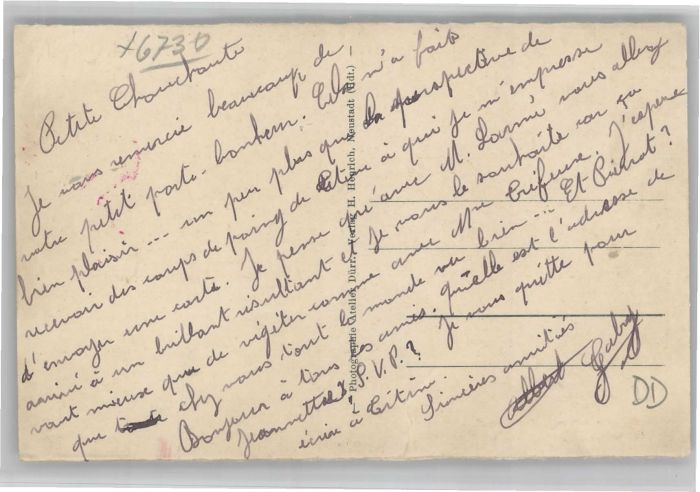 x6730
Petite Chouchoute
Je vous remercie beaucoup de
votre petit porte-bonheur. Cela m'a fait
bien plaisir ... un peu plus que la perspective de
recevoir des coups de poing de Titin à qui je m'empresse
d'envoyer une carte. Je pense qu'avec M. vous allez
arriver à un brillant résultat et je vous le souhaite car ça
vaut mieux que de végéter comme avec Mme. J'espère
que chez vous tout le monde va bien ... Et Pierrot?
Bonjour à tous ses amis, quelle est l'adresse de
Jeannette S.V.P.? Je vous quitte pour
écrire à Titin
Sincères amitiés
Gaby
Photographie Atelier Dürr, Verlag H. Henrich, Neustadt (Hdt.)
DD